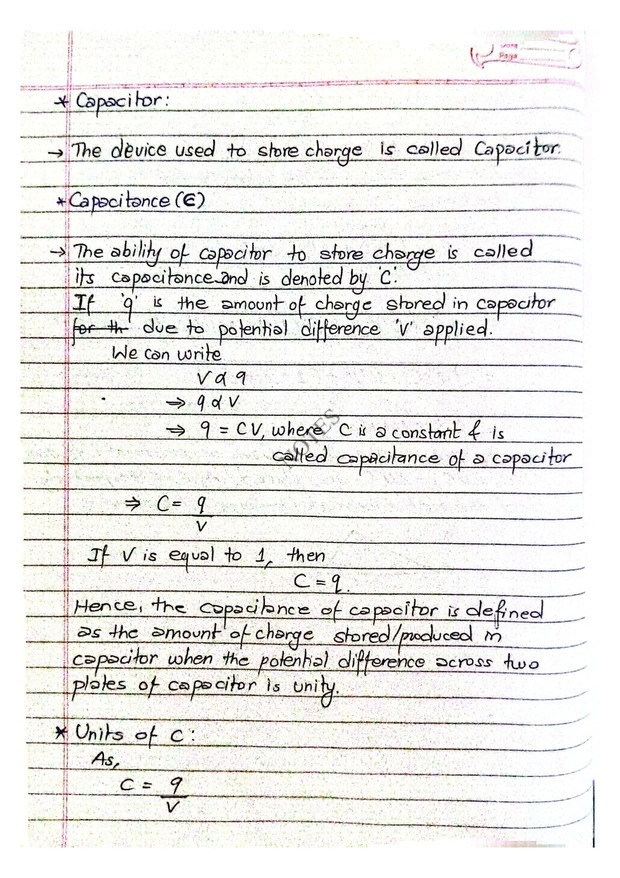 * Capacitor:
→ The device used to store charge is called Capacitor.
* Capacitance (C)
→ The ability of capacitor to store charge is called
its capacitance and is denoted by 'C'.
If 'q' is the amount of charge stored in capacitor
for th due to potential difference 'V' applied.
We can write
V α q
⇒ q α V
⇒ q = CV, where C is a constant & is
called capacitance of a capacitor
⇒ C = q
V
If V is equal to 1, then
C = q.
Hence, the capacitance of capacitor is defined
as the amount of charge stored/produced in
capacitor when the potential difference across two
plates of capacitor is unity.
* Units of C:
As,
C = q
V